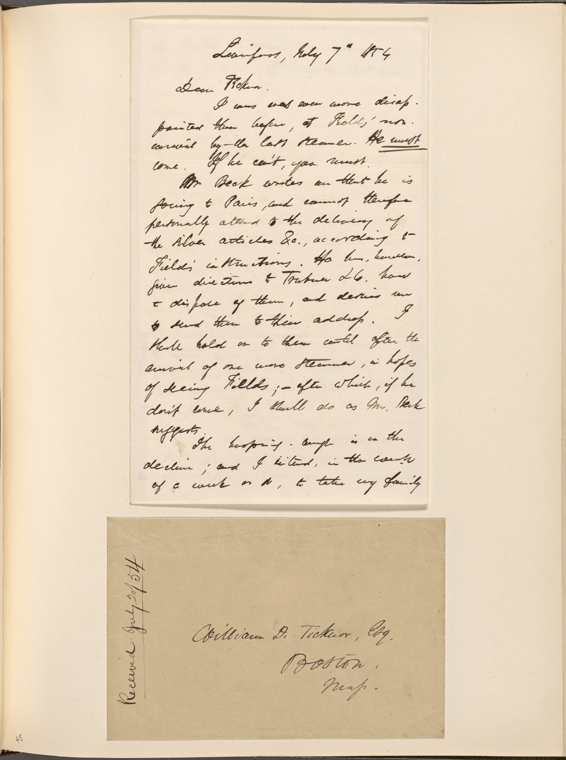 Liverpool, July 7th 1854
Dear Ticknor.
I was never more disap-
pointed than before, at Fields' non-
arrival by the last steamer. He must
come. If he can't, you must.
Mr Beck writes me that he is
going to Paris, and cannot therefore
personally attend to the delivery of
the silver articles &c., according to
Fields' instructions. He has, however,
given directions to Trubner & Co. how
to dispose of them, and desires me
to send them to their address. I
shall hold on to them until after the
arrival of one more steamer, in hopes
of seeing Fields;—after which, if he
don't come, I shall do as Mr. Beck
suggests.
The hooping-cough is on the
decline; and I intend, in the course
of a week or so, to take my family
Received July 20/54
William D. Ticknor, Esq.
Boston.
Mass.
45